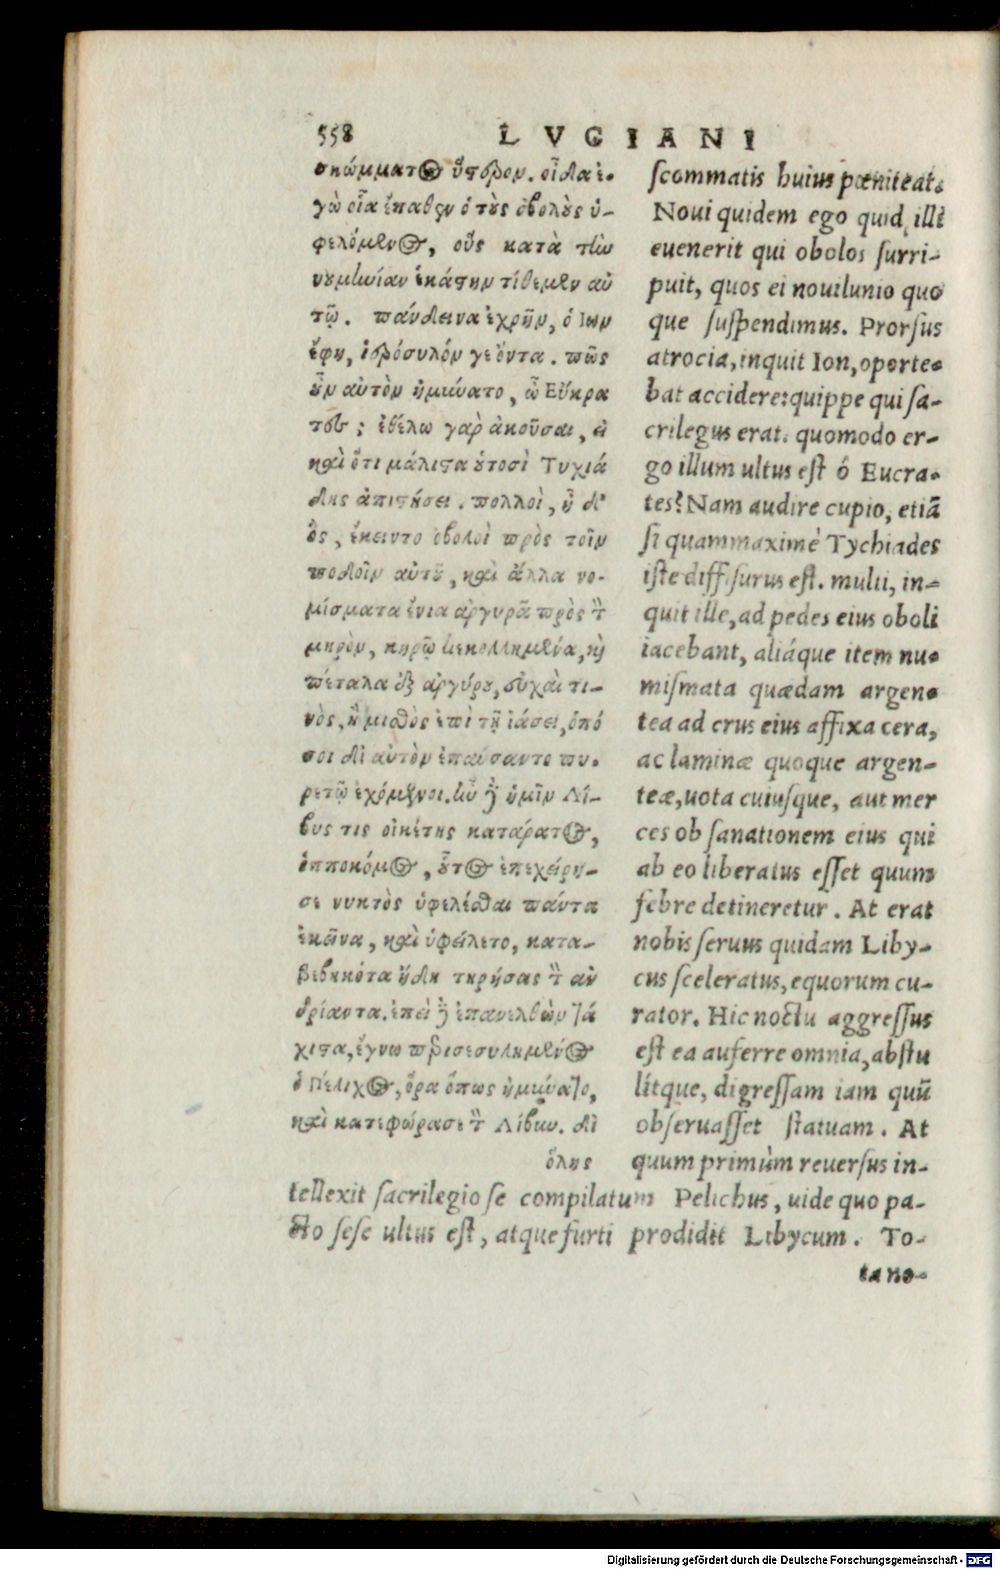 558 LVCIANI
σκώμματος ὕστερον. οἶδα ἐ-
γὼ οἷα ἔπαθεν ὁ τοὺς ὀβολοὺς ὑ-
φελόμενος, οὓς κατὰ τὴν
νουμηνίαν ἑκάστην τίθεμεν αὐ
τῷ. πάνδεινα ἐχρῆν, ὁ Ἴων
ἔφη, ἱερόσυλόν γε ὄντα. πῶς
οὖν αὐτὸν ἠμύνατο, ὦ Εὔκρα
τες; ἐθέλω γὰρ ἀκοῦσαι, εἰ
καὶ ὅτι μάλιστα οὑτοσὶ Τυχιά
δης ἀπιστήσει. πολλοὶ, ἦ δ'
ὃς, ἔκειντο ὀβολοὶ πρὸς τοῖν
ποδοῖν αὐτοῦ, καὶ ἄλλα νο-
μίσματα ἔνια ἀργυρᾶ πρὸς τὸν
μηρὸν, κηρῷ κεκολλημένα, καὶ
πέταλα ἐξ ἀργύρου, εὐχαί τι-
νὸς, ἢ μισθὸς ἐπὶ τῇ ἰάσει, ὁπό
σοι δι αὐτὸν ἐπαύσαντο πυ-
ρετῷ ἐχόμενοι. ἦν δὲ ἡμῖν Λί-
βυς τις οἰκέτης κατάρατος,
ἱπποκόμος, οὗτος ἐπεχείρη-
σε νυκτὸς ὑφελέσθαι πάντα
ἐκεῖνα, καὶ ὑφείλετο, κατα-
βεβηκότα ἤδη τηρήσας τὸν ἀν
δριάντα. ἐπεὶ δὲ ἐπανελθὼν τά
χιστα, ἔγνω περισεσυλημένος
ὁ Πέλιχος, ὅρα ὅπως ἠμύνατο,
καὶ κατεφώρασε τὸν Λίβυν. δι
ὅλης
scommatis huius pœniteat.
Noui quidem ego quid illi
euenerit qui obolos surri-
puit, quos ei nouilunio quo
que suspendimus. Prorsus
atrocia, inquit Ion, oporte-
bat accidere: quippe qui sa-
crilegus erat. quomodo er-
go illum ultus est ô Eucra-
tes? Nam audire cupio, etiã
si quammaximè Tychiades
iste diffisurus est. multi, in-
quit ille, ad pedes eius oboli
iacebant, aliáque item nu-
mismata quædam argen-
tea ad crus eius affixa cera,
ac laminæ quoque argen-
teæ, uota cuiusque, aut mer
ces ob sanationem eius qui
ab eo liberatus esset quum
febre detineretur. At erat
nobis seruus quidam Liby-
cus sceleratus, equorum cu-
rator. Hic noctu aggressus
est ea auferre omnia, abstu
lítque, digressam iam quũ
obseruasset statuam. At
quum primùm reuersus in-
tellexit sacrilegio se compilatum Pelichus, uide quo pa-
cto sese ultus est, atque furti prodidit Libycum. To-
ta no-
Digitalisierung gefördert durch die Deutsche Forschungsgemeinschaft - DFG